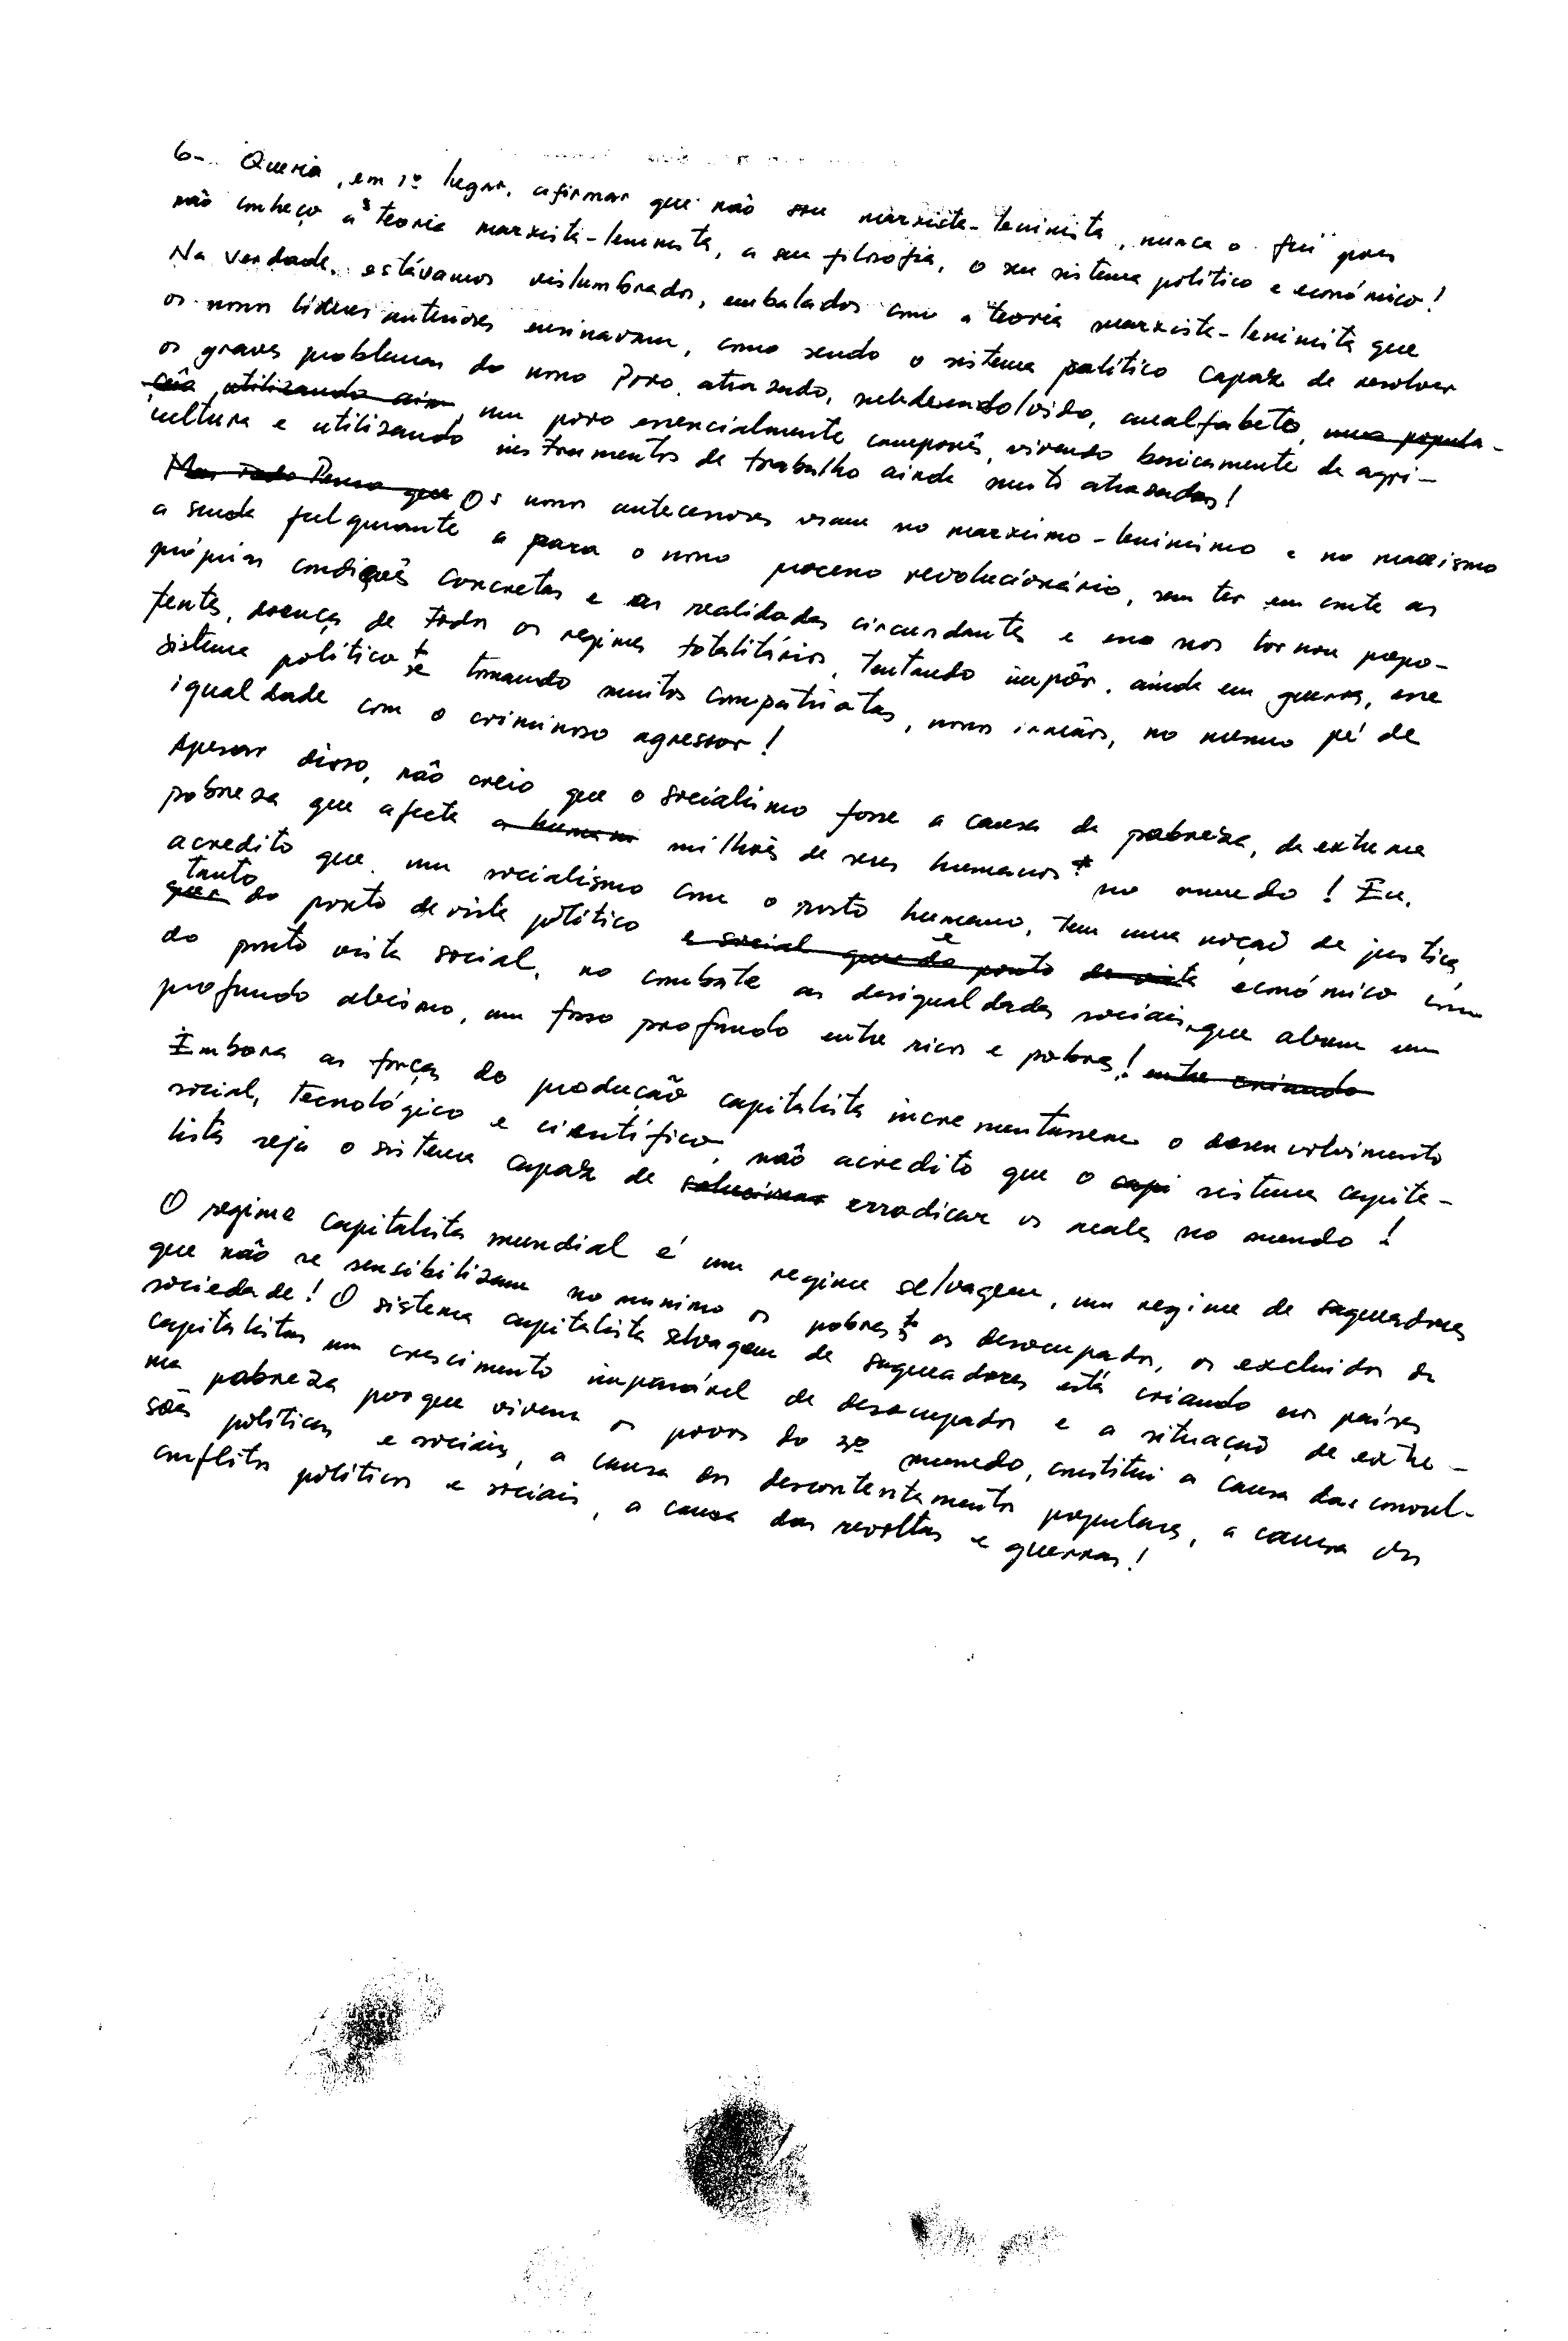 6- Queria, em 1º lugar, afirmar que não sou marxista-leninista, nunca o fui pois
não conheço a teoria marxista-leninista, a sua filosofia, o seu sistema político e económico!
Na verdade, estávamos vislumbrados, embalados com a teoria marxista-leninista que
os nossos líderes anteriores ensinavam, como sendo o sistema político capaz de resolver
os graves problemas do nosso Povo atrasado, subdesenvolvido, analfabeto, uma popula-
ção utilizando ain, um povo essencialmente camponês, vivendo basicamente de agri-
cultura e utilizando instrumentos de trabalho ainda muito atrasados!
Mas tudo Penso que Os nossos antecessores viam no marxismo-leninismo e no maoismo
a senda fulgurante a para o nosso processo revolucionário, sem ter em conta as
próprias condições concretas e as realidades circundantes e isso nos tornou prepo-
tentes, doença de todos os regimes totalitários, tentando impôr, ainda em guerra, esse
sistema político e tomando muitos compatriotas, nossos irmãos, no mesmo pé de
igualdade com o criminoso agressor!
Apesar disso, não creio que o socialismo fosse a causa da pobreza, da extrema
pobreza que afecta a humani milhões de seres humanos no mundo! Eu,
acredito que um socialismo com o rosto humano, tem uma noção de justiça,
tanto
quer do ponto de vista político e social quer do ponto de vista e económico como
do ponto vista social, no combate as desigualdades sociais que abrem um
profundo abismo, um fosso profundo entre ricos e pobres! entre criando
Embora as forças do produção capitalista incrementassem o desenvolvimento
social, tecnológico e científico, não acredito que o capi sistema capita-
lista seja o sistema capaz de solucionar erradicar os males no mundo!
O regime capitalista mundial é um regime selvagem, um regime de saqueadores
que não se sensibilizam no minimo os pobres os desocupados, os excluidos da
sociedade! O sistema capitalista selvagem de saqueadores está criando nos países
capitalistas um crescimento imparável de desocupados e a situação de extre-
ma pobreza porque vivem os povos do 3º mundo, constitui a causa das convul-
sões políticas e sociais, a causa dos descontentamentos populares, a causa dos
conflitos políticos e sociais, a causa das revoltas e guerras!